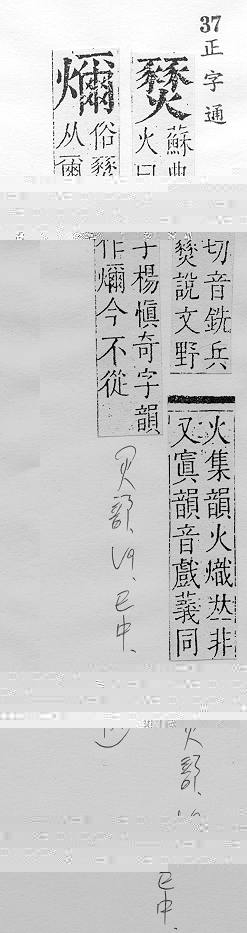 37
正字通
燹
蘇典切音銑兵
火曰燹說文野
火集韻火熾𠀤非
又寘韻音戲義同
俗燹字楊慎奇字韻
从爾作 今不從
火部、49、巳中.
火部、
巳中.